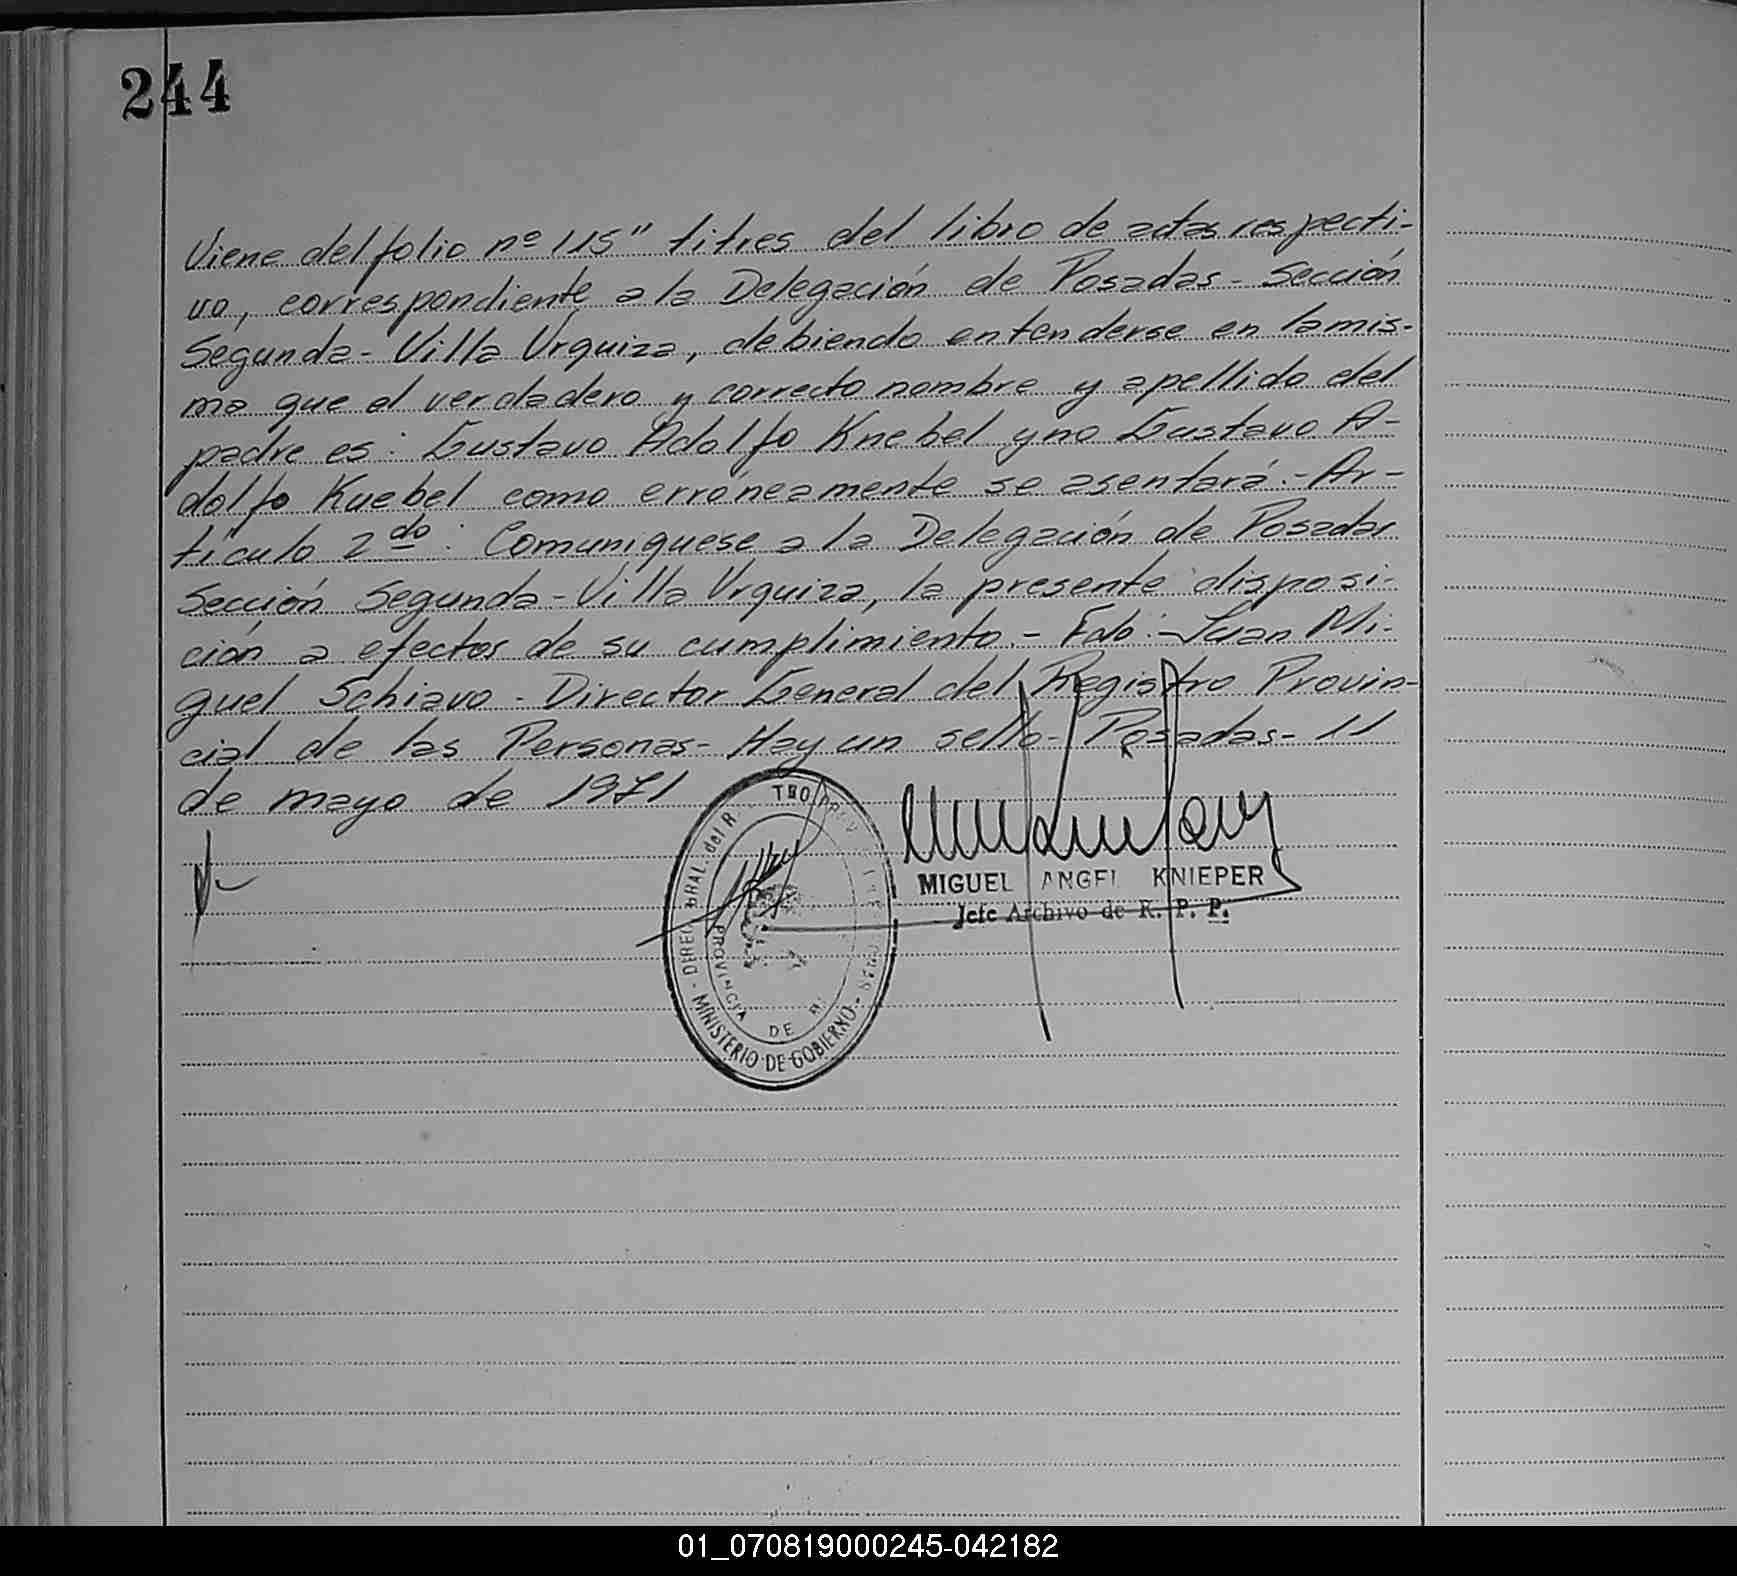 244
Viene del folio nº 115" titres del libro de actas respecti-
vo, correspondiente a la Delegación de Posadas - Sección
Segunda - Villa Urquiza, debiendo entenderse en la mis-
ma que el verdadero y correcto nombre y apellido del
padre es: Gustavo Adolfo Knebel y no Gustavo A-
dolfo Kuebel como erróneamente se asentará.- Ar-
tículo 2do: Comuniquese a la Delegación de Posadas
Sección Segunda - Villa Urquiza, la presente disposi-
ción a efectos de su cumplimiento.- Fdo: - Juan Mi-
guel Schiavo - Director General del Registro Provin-
cial de las Personas - Hay un sello - Posadas - 11
de mayo de 1971
MIGUEL ANGEL KNIEPER
Jefe Archivo de R. P. P.
MINISTERIO DE GOBIERNO
PROVINCIA DE
01_070819000245-042182